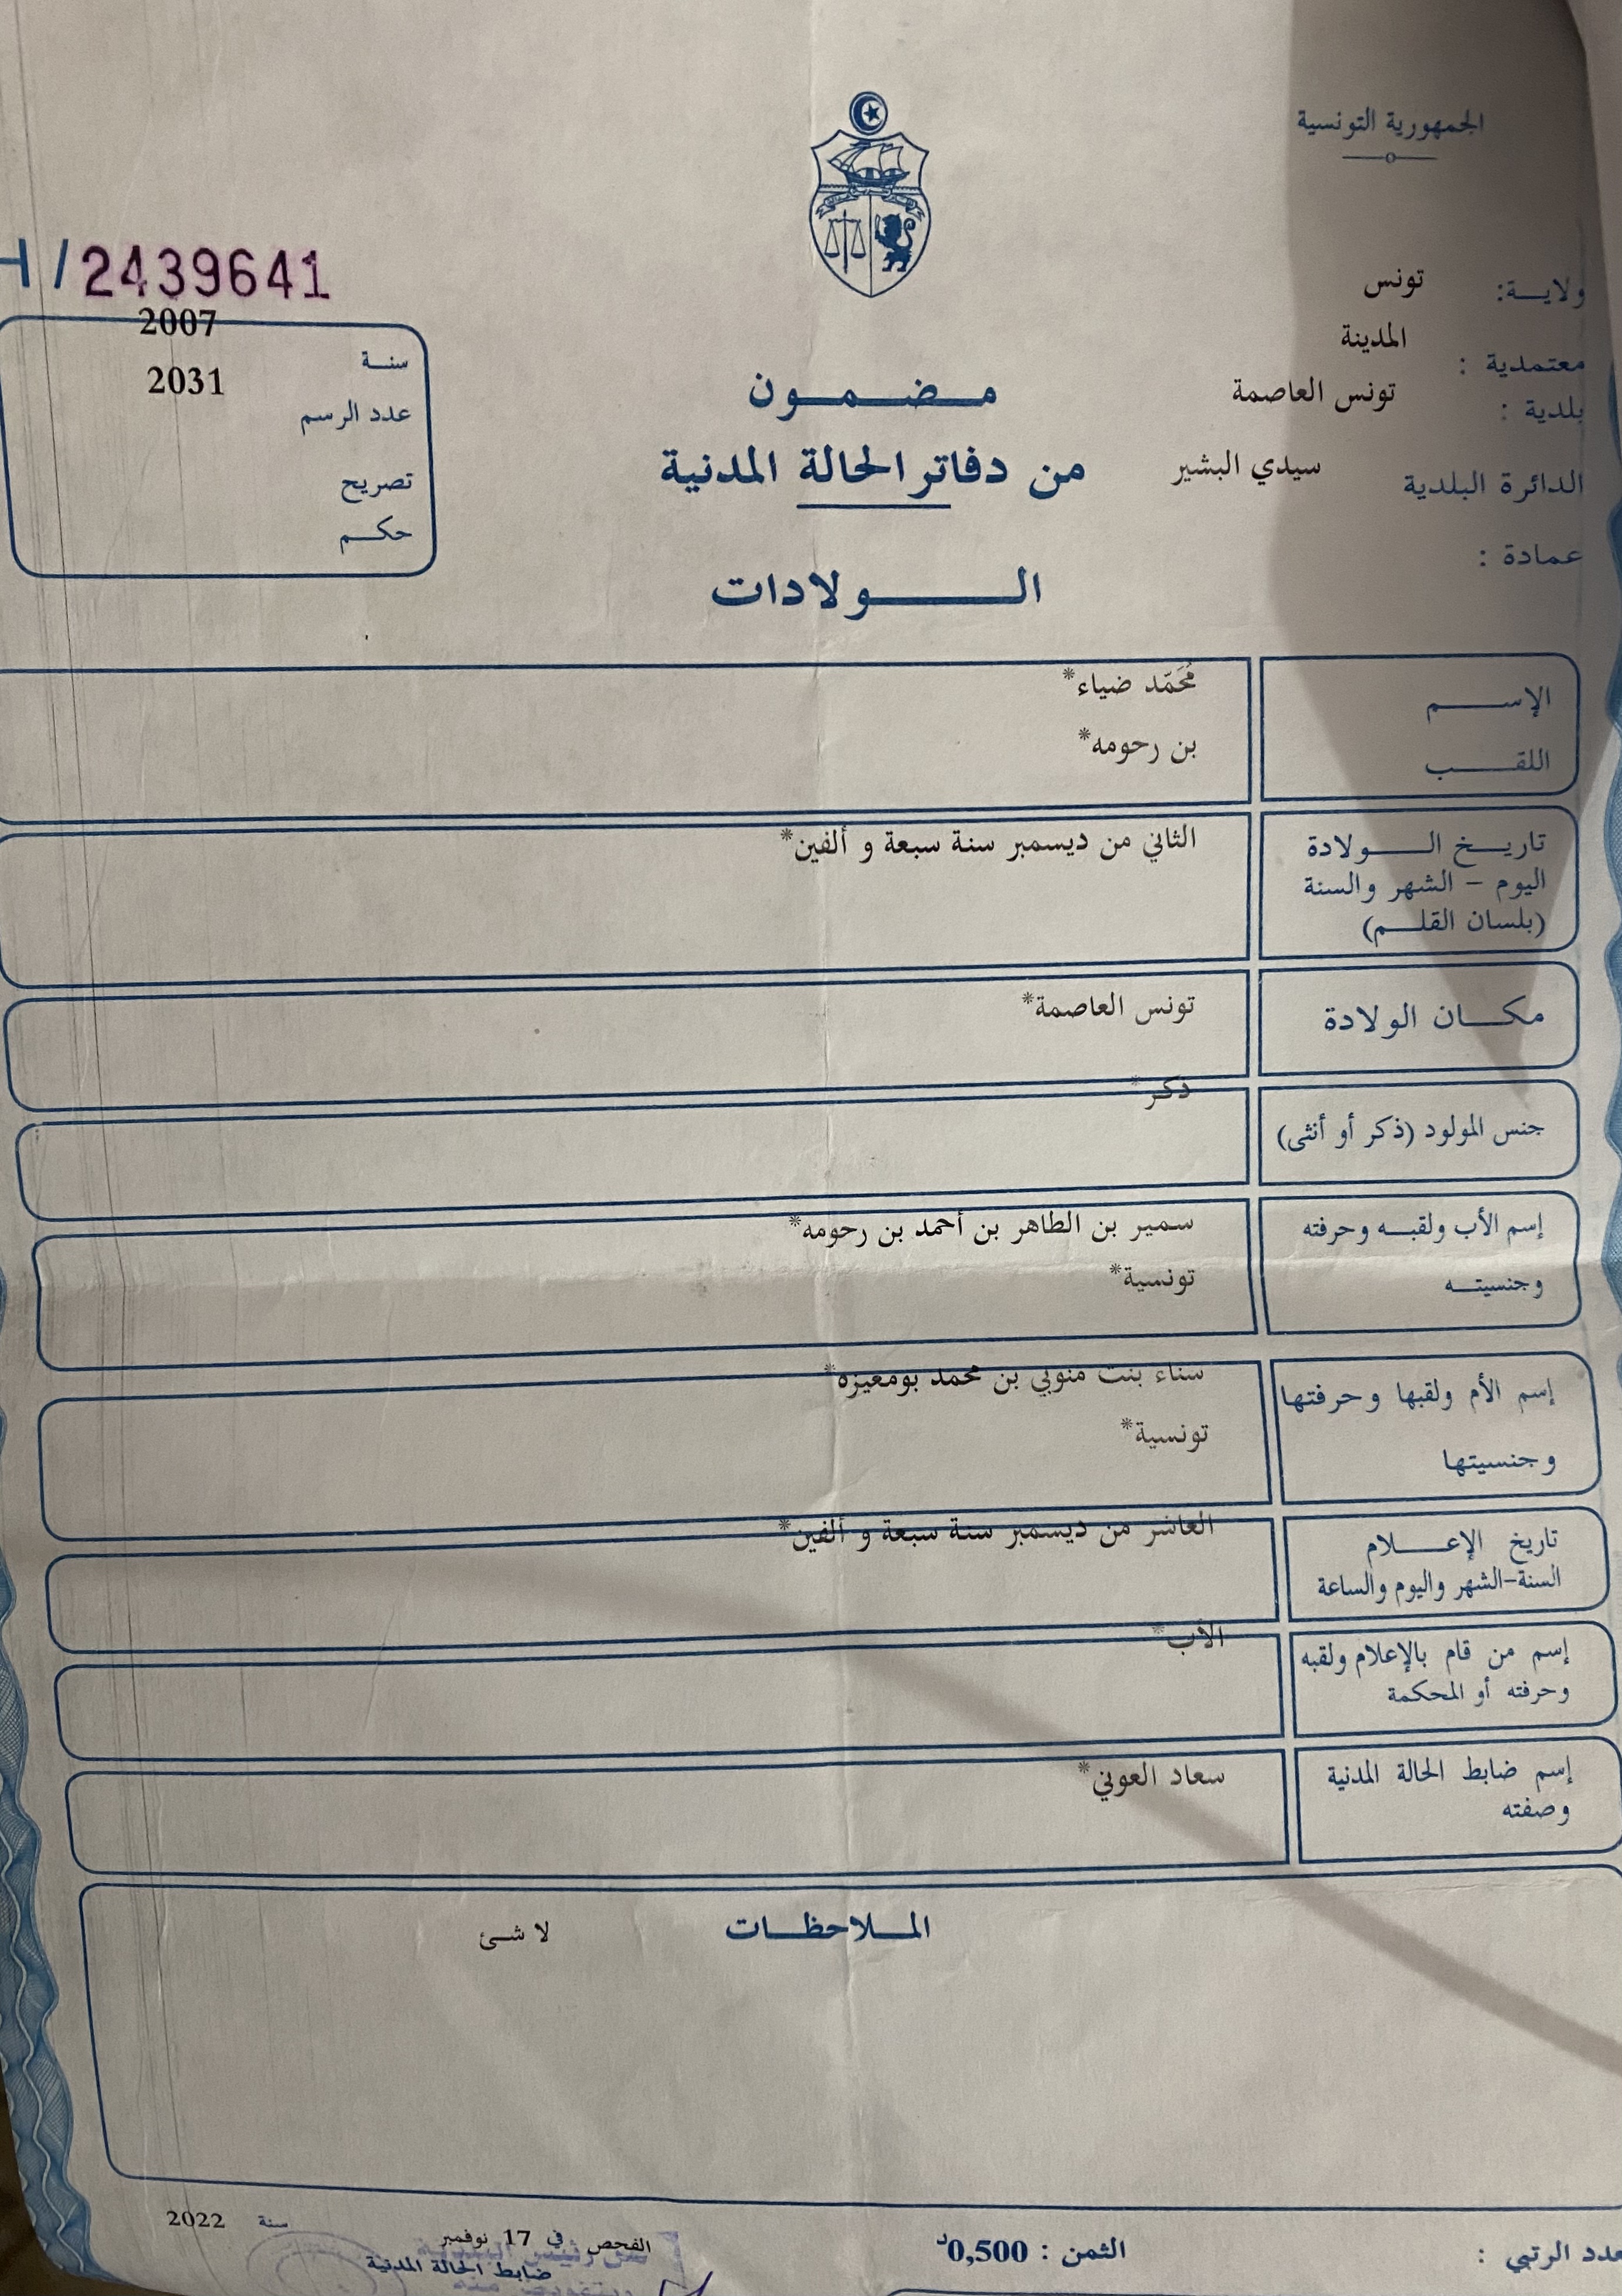 الجمهورية التونسية
ولايـــة: تونس
معتمدية : المدينة
بلدية : تونس العاصمة
الدائرة البلدية سيدي البشير
عمادة :
H/2439641
2007
سنــة
2031
عدد الرسم
تصريح
حكــم
مــضــمــون
من دفاتر الحالة المدنية
الـــولادات
الإســـم مُحَمّد ضياء*
اللقــب بن رحومه*
تاريــخ الـــولادة الثاني من ديسمبر سنة سبعة و ألفين*
اليوم – الشهر والسنة
(بلسان القلــم)
مكــان الولادة تونس العاصمة*
جنس المولود (ذكر أو أنثى) ذكر*
إسم الأب ولقبــه وحرفته سمير بن الطاهر بن أحمد بن رحومه*
وجنسيتــه تونسية*
إسم الأم ولقبها وحرفتها سناء بنت منوبي بن محمد بومعيزه*
وجنسيتها تونسية*
تاريخ الإعـــلام العاشر من ديسمبر سنة سبعة و ألفين*
السنة-الشهر واليوم والساعة
إسم من قام بالإعلام ولقبه الأب*
وحرفته أو المحكمة
إسم ضابط الحالة المدنية سعاد العوني*
وصفته
المــلاحظــات لا شئ
عدد الرتبي :
الثمن : 0,500د
الفحص في 17 نوفمبر سنة 2022
ضابط الحالة المدنية